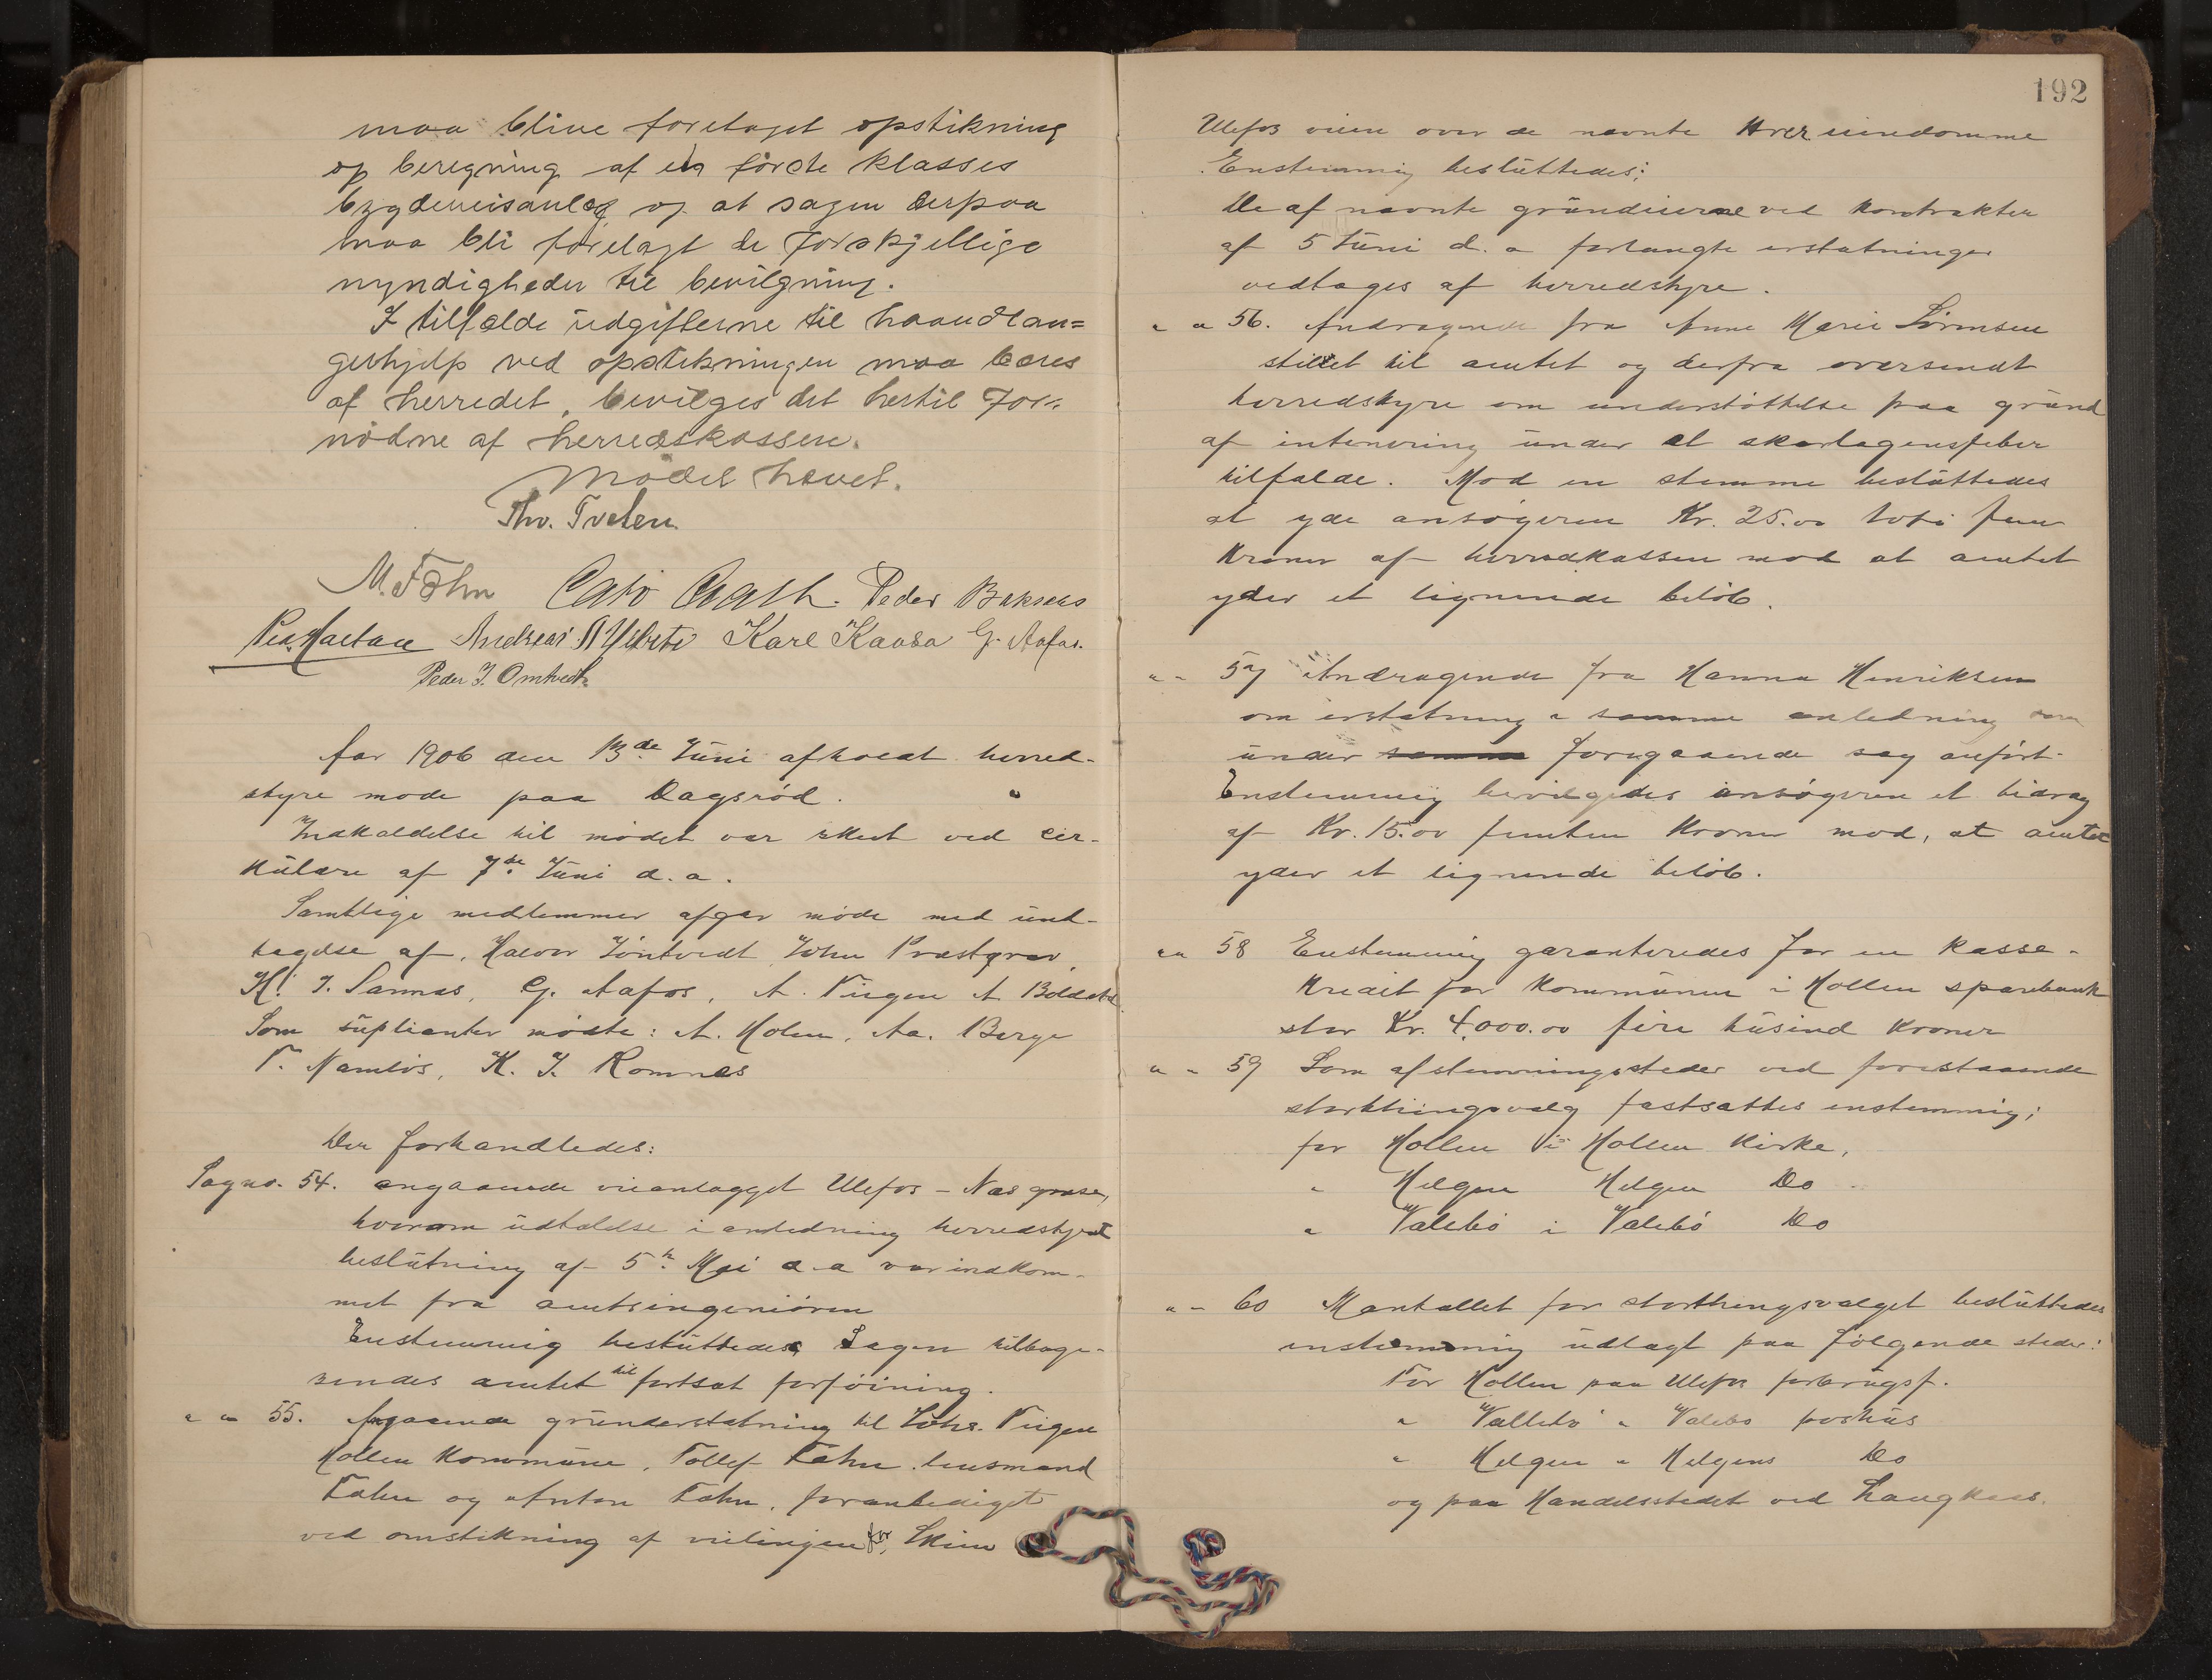 maa blive foretaget opstikning
og beregning af en første klasses
bygdeveisanlæg og at sagen derpaa
maa bli forelagt de forskjellige
myndigheder til bevilgning.
I tilfælde udgifterne til haandlan=
gerhjelp ved opstikningen maa bæres
af herredet, bevilges det hertil for-
nødne af herredskassen.
Mødet hævet.
Thv. Tveten
M. Fæhn Cato Aall. Peder
Andreas Karl Kaasa G. Aafos.
Peder J. Omtvedt
Aar 1906 den 13de Juni afholdt herred-
styre møde paa Dagsrød.
Indkaldelse til mødet var skeet ved cir-
kulære af 7de Juni d.a.
Samtlige medlemmer afgav møde med und-
tagelse af, Halvor Jøntvedt, John Præstgrav,
H. J. Sannæs, G. Aafos, A. Teigen A
Som suplianter mødte: A. Holm, Aa. Berge
T. Namløs, K. J. Romnæs
Der forhandledes:
Sag no. 54. angaaende veianlægget Ulefos - Næs grænse,
hvorom udtalelse i anledning herredstyrets
beslutning af 5te Mai d.a var indkom-
met fra amtsingeniøren
Enstemmig besluttedes Sagen tilbage-
sendes amtet til fortsat forføining.
" " 55. Angaaende grunderstatning til Johs. Teigen
Hollen Kommune, Tollef Fæhn lensmand
Fæhn og Anton Fæhn, foranlediget
ved omstikning af veilinjen for Skien
192
Ulefos veien over de nævnte eiendomme
Enstemmig besluttedes:
De af nævnte grundeierne ved kontrakter
af 5 Juni d. a forlangte erstatninger
vedtages af herredstyre.
" " 56. Andragende fra Anne Marie Sørensen
stillet til amtet og derfra oversendt
herredstyre om understøttelse paa grund
af internering under et skarlagensfeber
tilfælde. Mod en stemme besluttedes
at yde ansøgeren Kr. 25.00 toti fem
Kroner af herredkassen mod at amtet
yder et lignende beløb.
" " 57 Andragende fra Hanna Henriksen
om erstatning i samme anledning som
under samme foregaaende sag anført.
Enstemmig bevilgedes ansøgeren et bidrag
af Kr. 15.00 femten Kroner mod, at amtet
yder et lignende beløb.
" " 58 Enstemmig garanteredes for en kasse-
kredit for Kommunen i Hollen sparebank
stor Kr. 4,000.00 fire tusind Kroner
" " 59 Som afstemningssteder ved forestaaende
storthingsvalg fastsattes enstemmig;
for Hollen i Hollen Kirke,
" Helgen Helgen Do
" Valebø i Valebø Do
" " 60 Mantallet for storthingsvalget besluttedes
enstemmig udlagt paa følgende steder:
For Hollen paa Ulefos forbrugsf.
" Vallebø " Valebø posthus
" Helgen " Helgens Do
og paa Handelsstedet ved Langkaas.